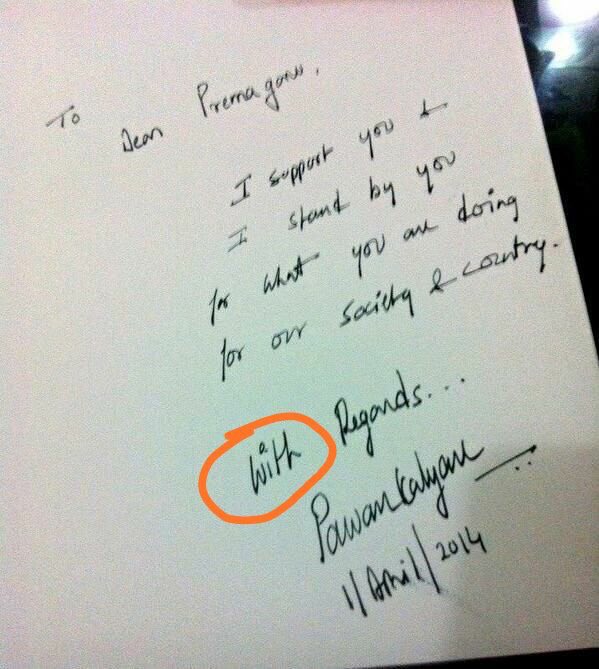 To
Dear Premagaru,
I support you &
I stand by you
for what you are doing
for our society & country.
With Regards...
Pawan Kalyan
1/April/2014